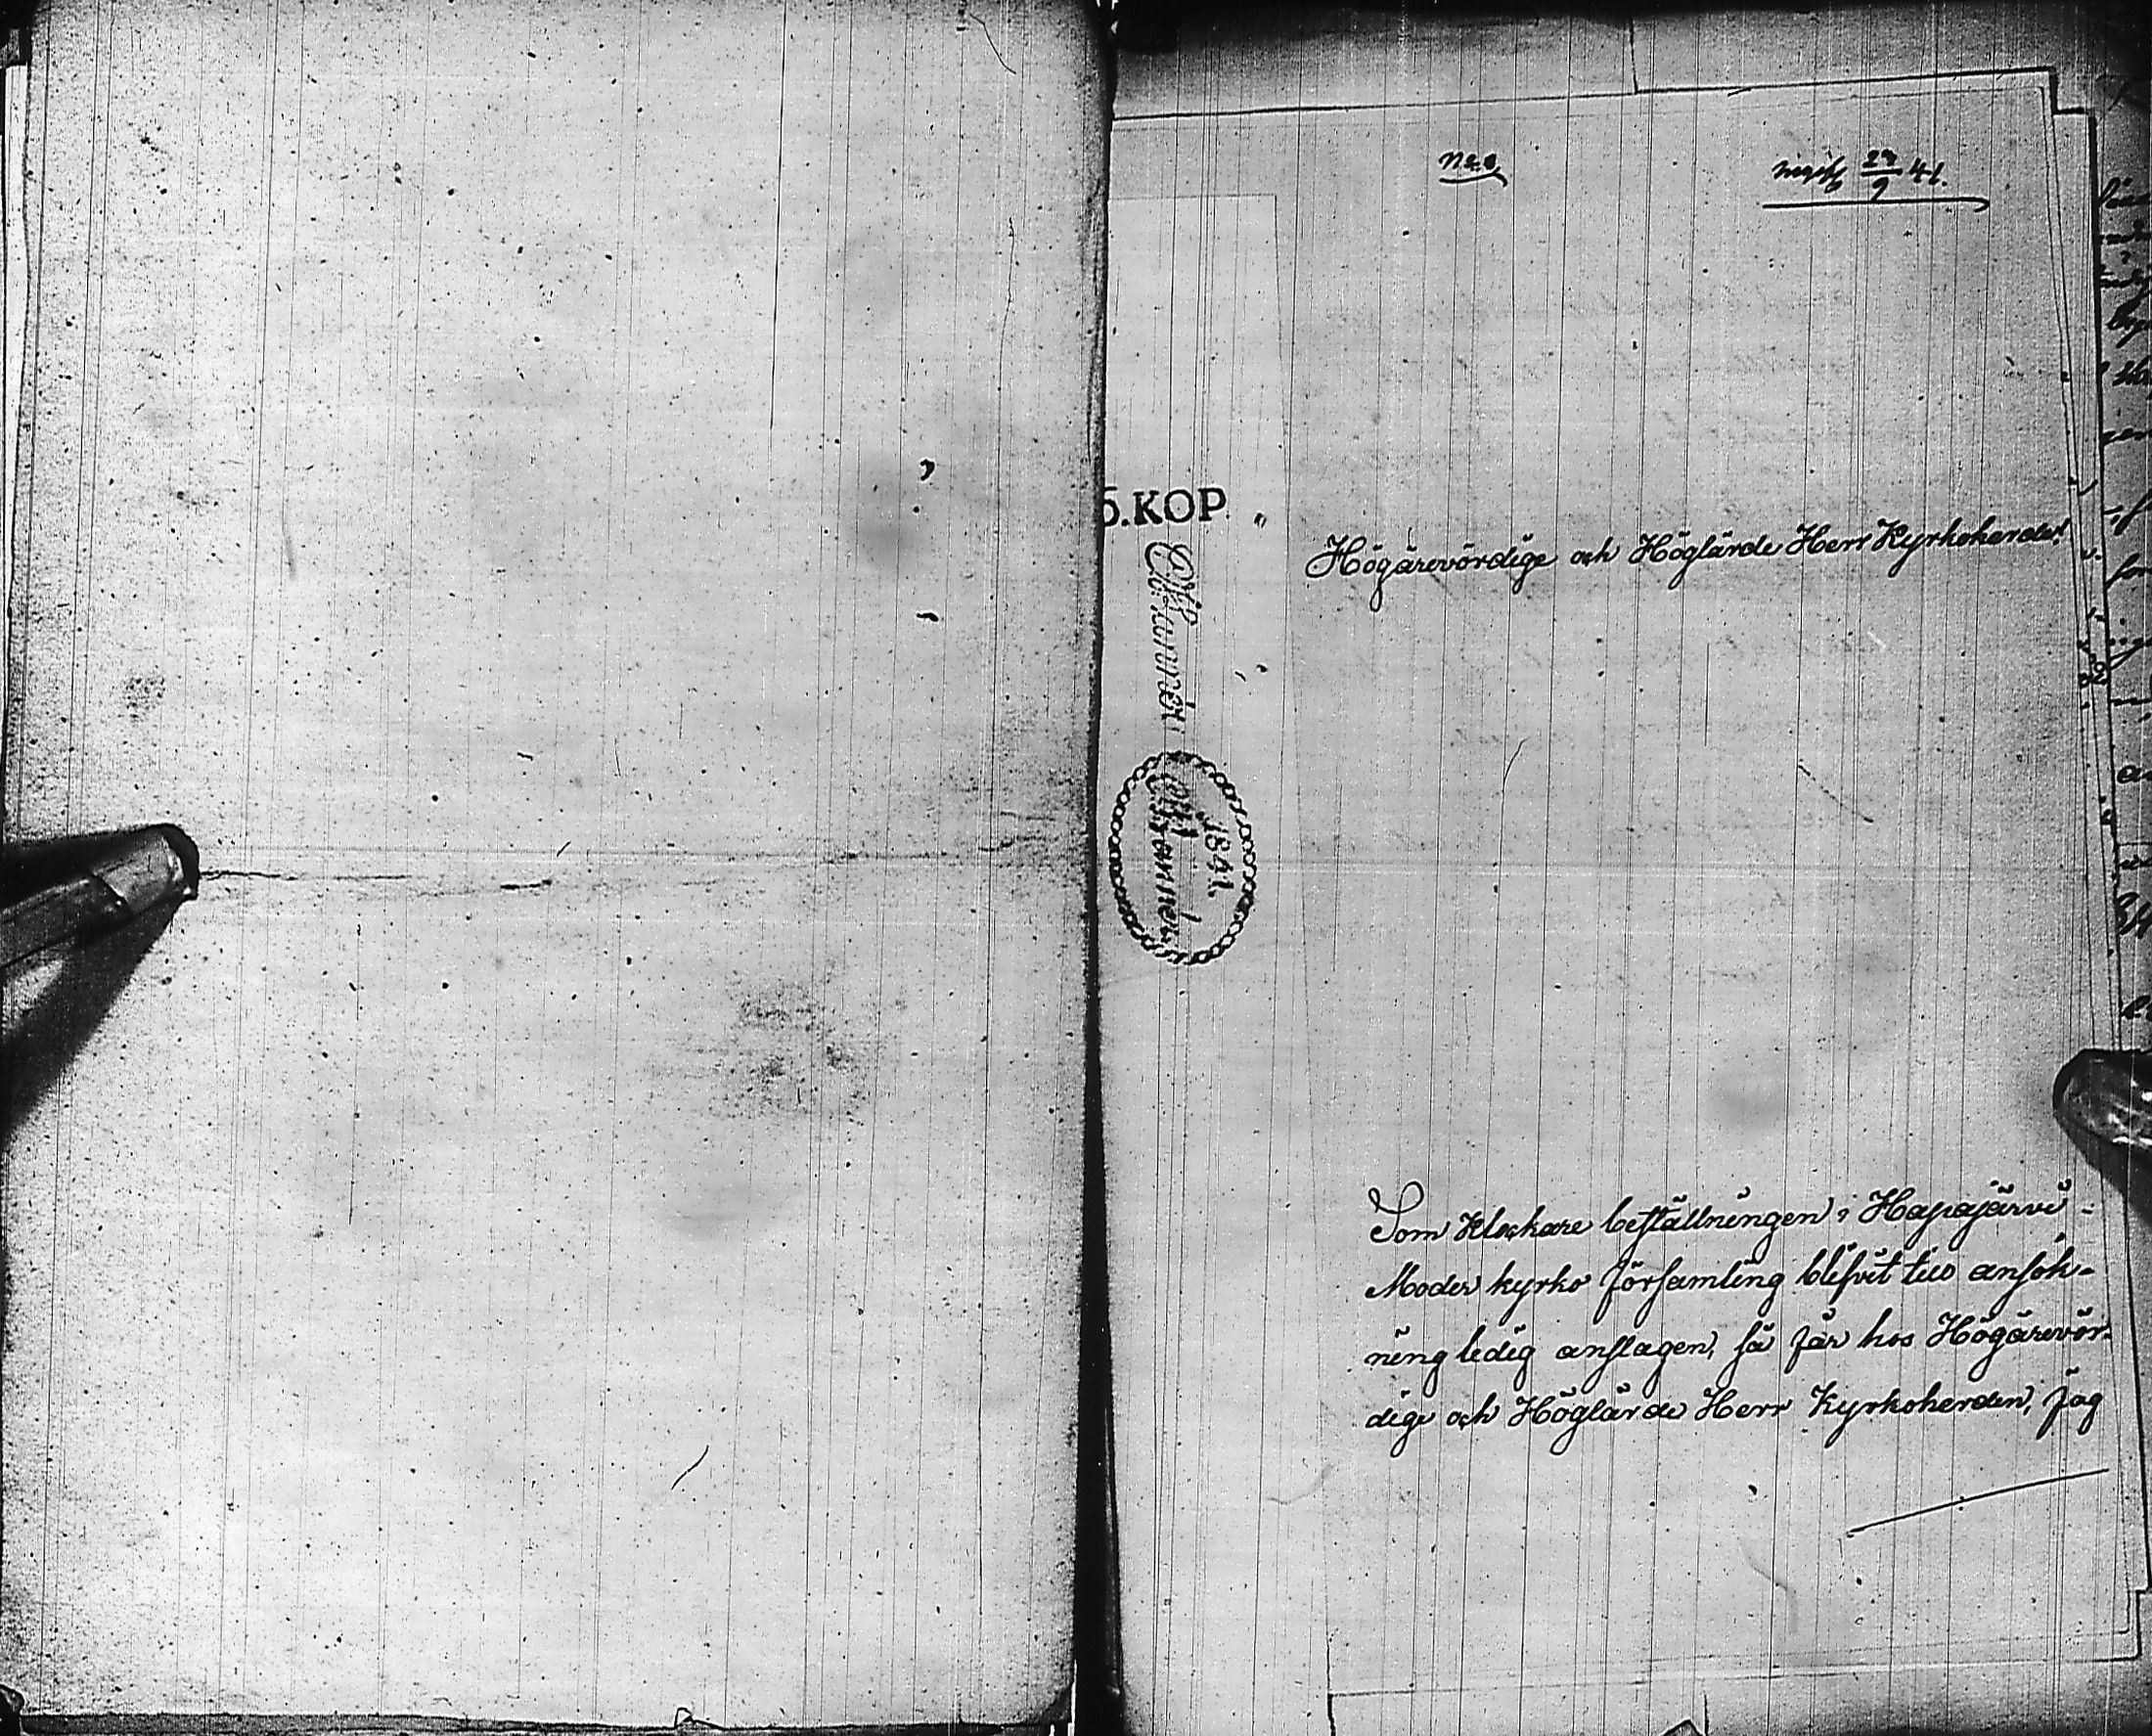 27/9 41.
5.KOP.
Högärevördige och Höglärde Herr Kyrkoherde!
1841.
Som Klockare beställningen i Hapajärvi
Moder kyrko församling blifvit till ansök-
ning ledig anslagen, så får hos Högärevör-
dige och Höglärde Herr Kyrkoherden, jag